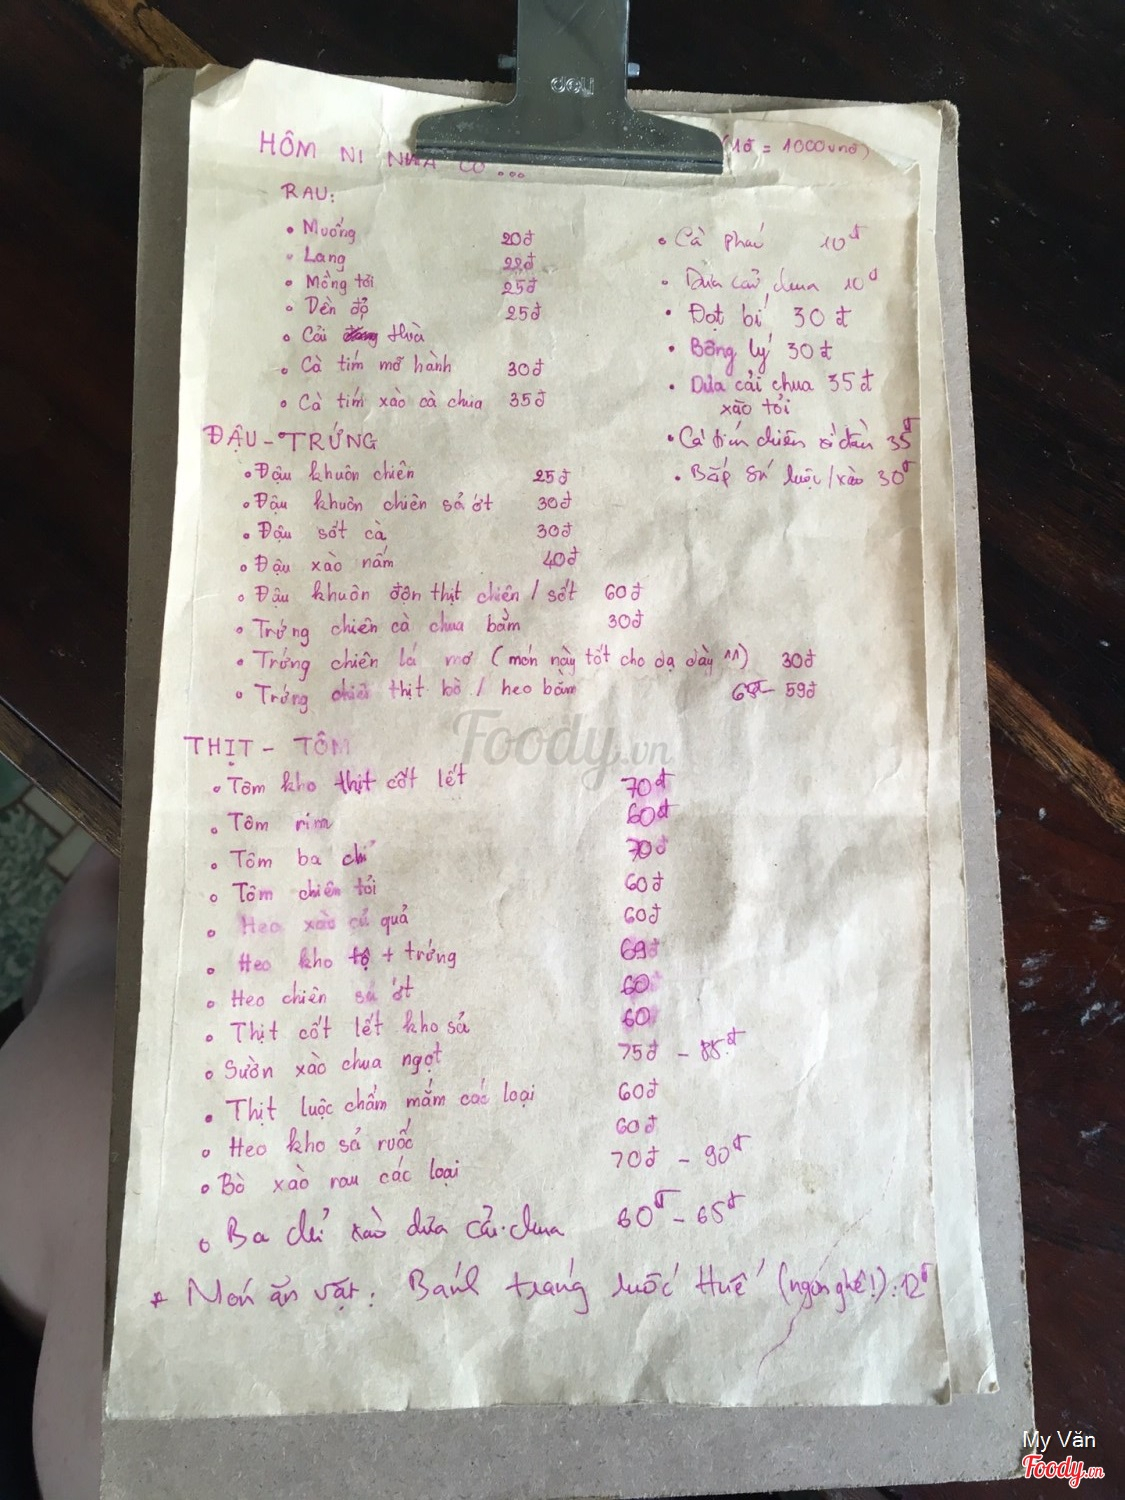 deli
HÔM NI NHÀ CÓ... (1đ = 1000vnđ)
RAU:
• Muống 20đ
• Lang 22đ
• Mồng tơi 25đ
• Dền đỏ 25đ
• Cải thìa
• Cà tím mỡ hành 30đ
• Cà tím xào cà chua 35đ
• Cà pháo 10đ
• Dưa cải chua 10đ
• Đọt bí 30đ
• Bông lý 30đ
• Dưa cải chua 35đ
xào tỏi
• Cà tím chiên xì dầu 35đ
• Bắp sú luộc/xào 30đ
ĐẬU - TRỨNG
• Đậu khuôn chiên 25đ
• Đậu khuôn chiên sả ớt 30đ
• Đậu sốt cà 30đ
• Đậu xào nấm 40đ
• Đậu khuôn độn thịt chiên / sốt 60đ
• Trứng chiên cà chua bằm 30đ
• Trứng chiên lá mơ (món này tốt cho dạ dày ^^) 30đ
• Trứng chiên thịt bò / heo bằm - 59đ
THỊT - TÔM
• Tôm kho thịt cốt lết 70đ
• Tôm rim 60đ
• Tôm ba chỉ 70đ
• Tôm chiên tỏi 60đ
• Heo xào củ quả 60đ
• Heo kho tộ + trứng 69đ
• Heo chiên sả ớt 60
• Thịt cốt lết kho sả 60
• Sườn xào chua ngọt 75đ - 85đ
• Thịt luộc chấm mắm các loại 60đ
• Heo kho sả ruốc 60đ
• Bò xào rau các loại 70đ - 90đ
• Ba chỉ xào dưa cải chua 60đ - 65đ
* Món ăn vặt: Bánh tráng ruốc Huế (ngon ghê!): 12đ
Foody.vn
My Văn
Foody.vn